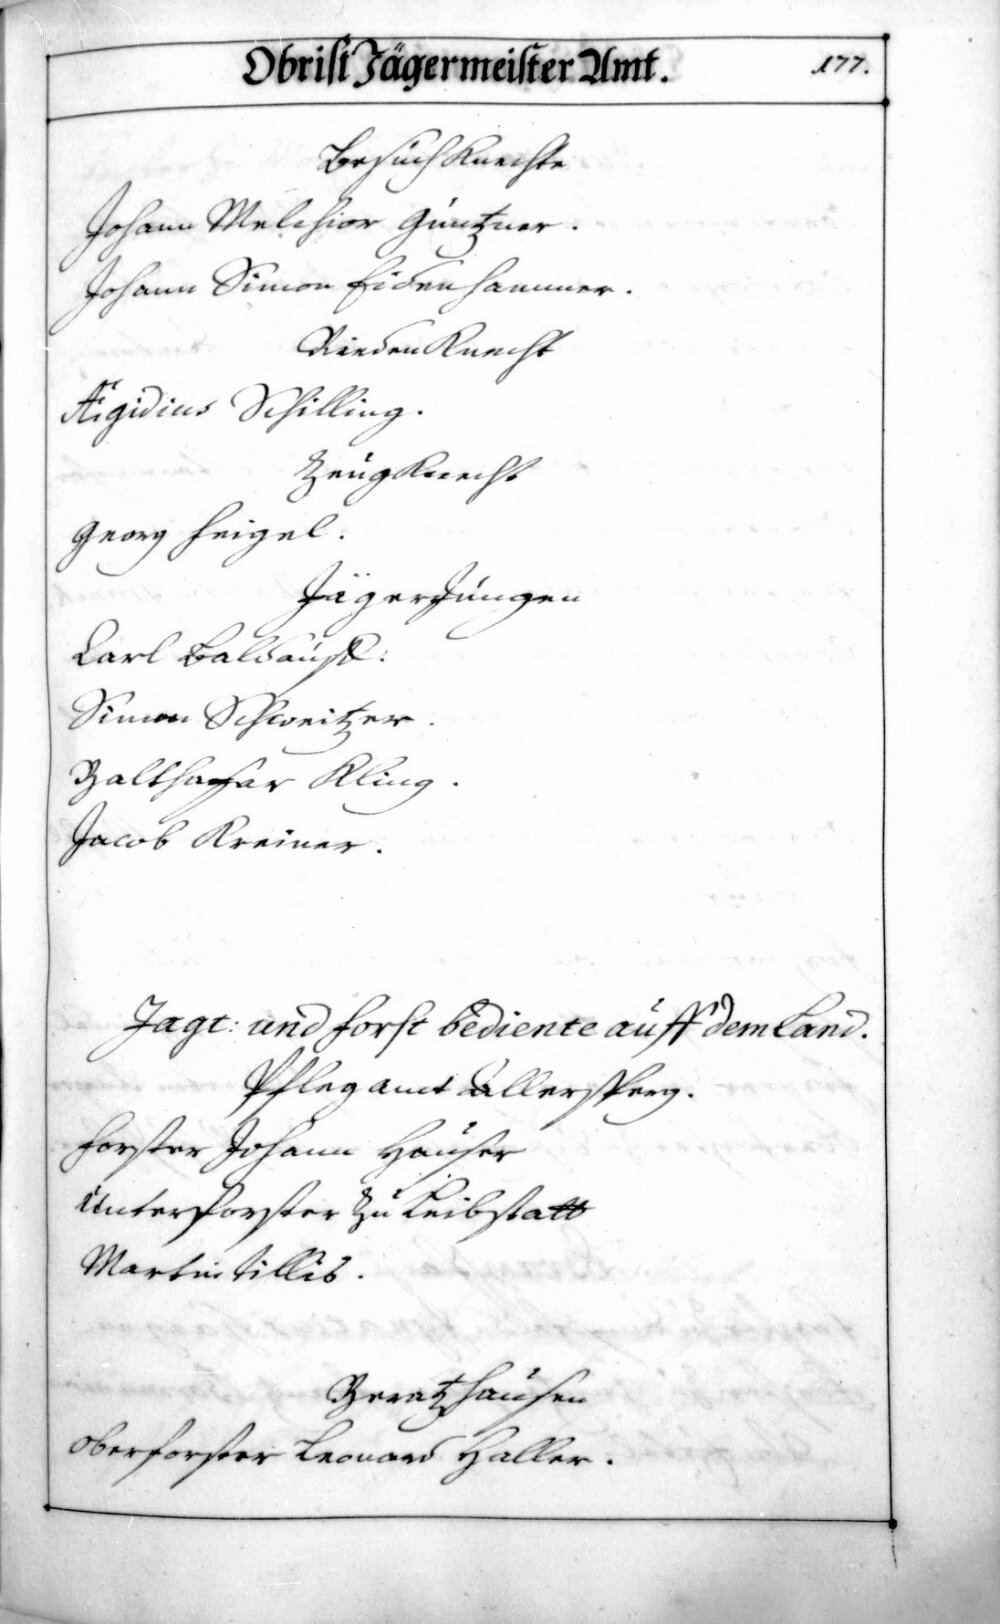 Obrist Jägermeister Amt.
177.
Besuch Knechte
Johann Melchior Güntzner.
Johann Simon Eidenhammer.
Rieden Knecht
Ægidius Schilling.
Zeug Knecht
Georg Feigel.
Jäger Jungen
Carl Baldauff:
Simon Schweitzer.
Balthasar Kling.
Jacob Kreiner.
Jagt: und forst bediente auff dem Land.
Pfleg amt Allersperg.
Forster Johann Hauser
Unterforster zu Leibstatt
Martin Villis.
Beratzhausen
Oberforster Leonard Haller.